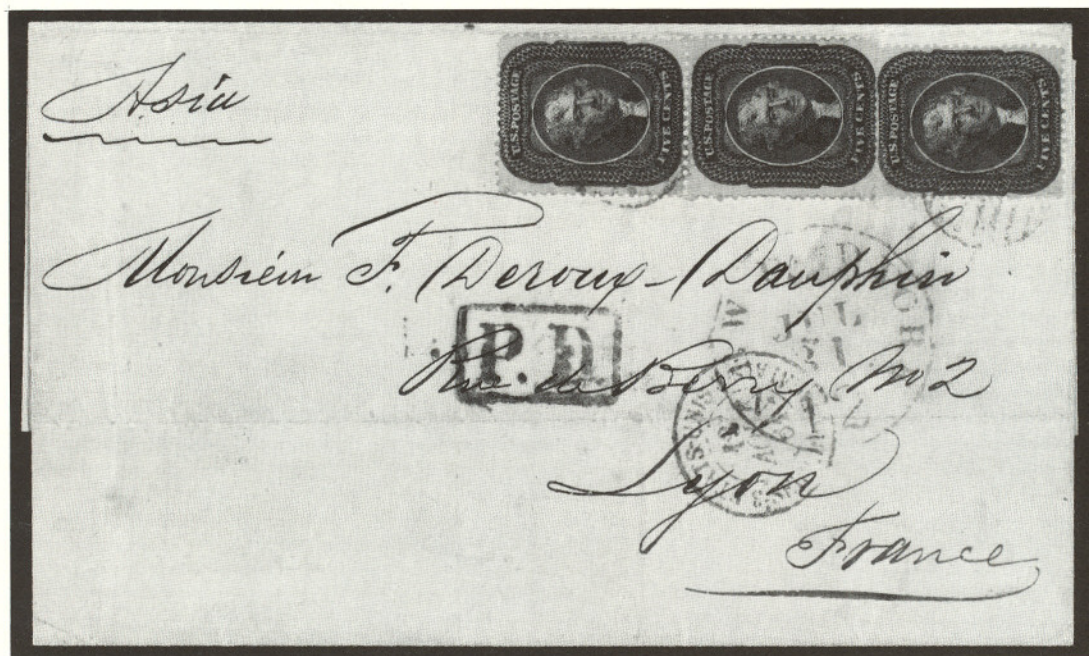 Asia
U.S. POSTAGE FIVE CENTS
U.S. POSTAGE FIVE CENTS
U.S. POSTAGE FIVE CENTS
Monsieur F. Deroux-Dauphin
P.D.
Rue de Berry No 2
Lyon
France
JUL
31